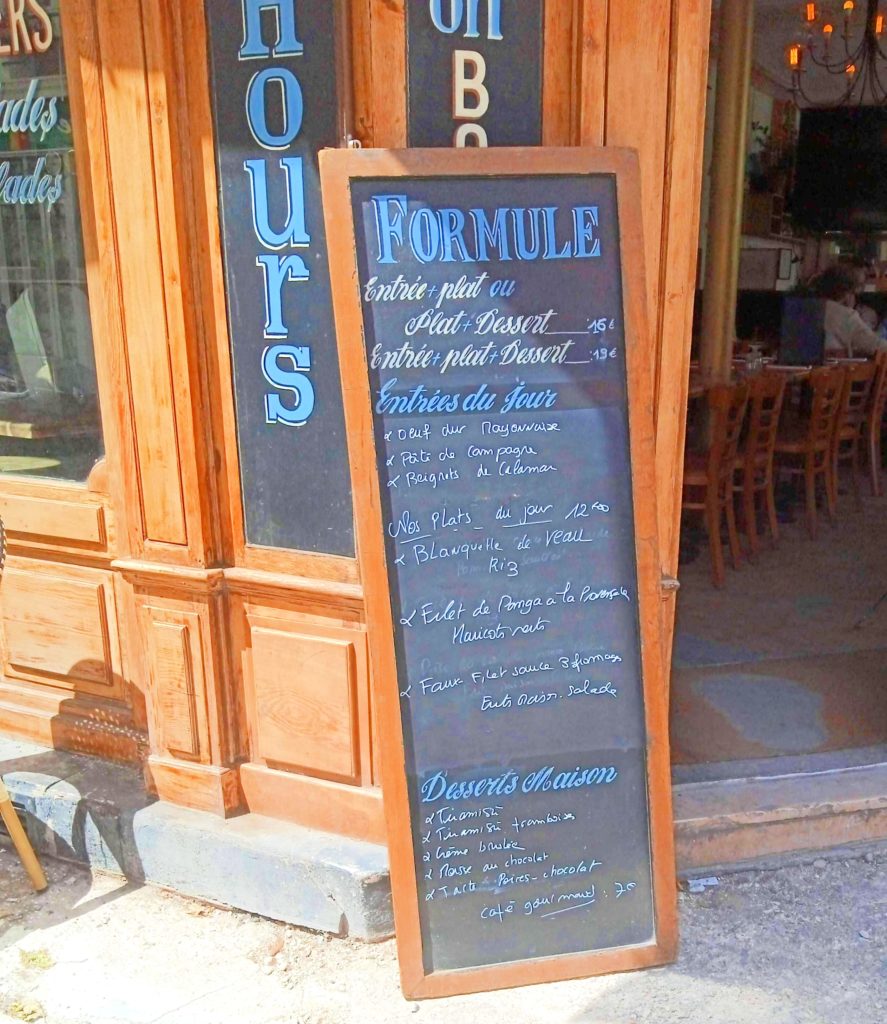 ERS
ades
lades
Hours
on
BO
FORMULE
Entrée + plat ou
Plat + Dessert ___ :16€
Entrée + plat + Dessert __ :19€
Entrées du jour
Oeuf dur Mayonnaise
Pâté de Campagne
Beignets de Calamar
Nos Plats du jour 12€00
Blanquette de Veau
Riz
Filet de Panga a la Provençale
Haricots verts
Faux-Filet sauce 3 fromages
salade
Desserts Maison
Tiramisù
Tiramisù framboises
Crème brulée
Mousse au chocolat
Tarte Poires-chocolat
café gourmand : 7€